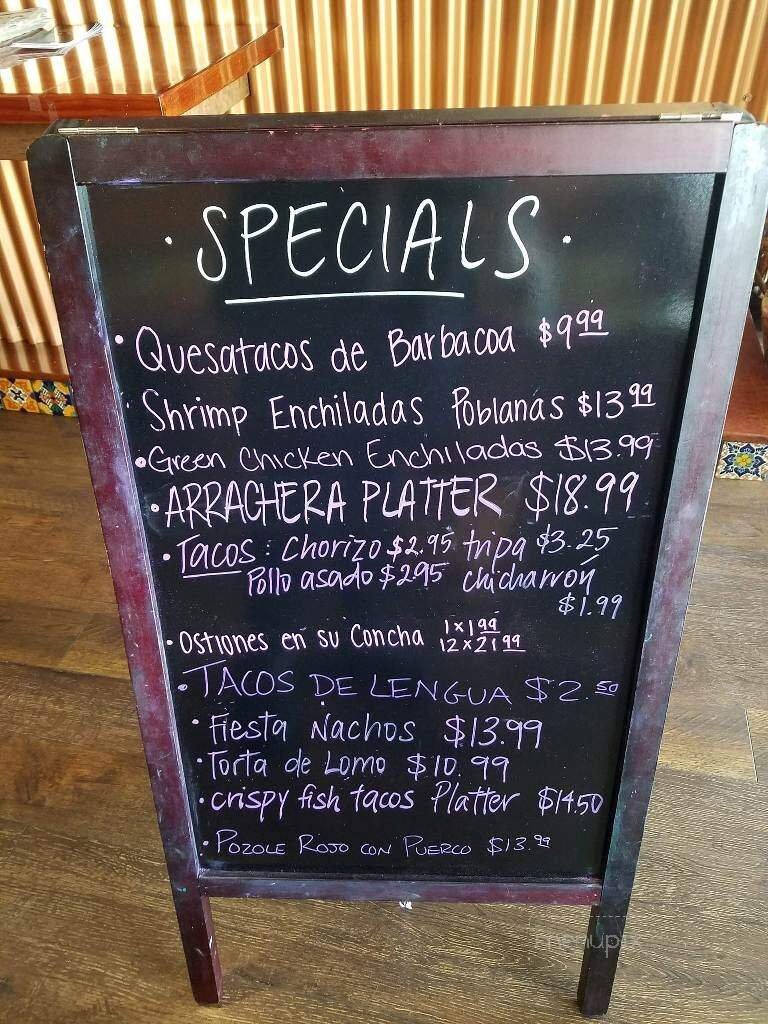 · SPECIALS ·
· Quesatacos de Barbacoa $9.99
Shrimp Enchiladas Poblanas $13.99
· Green Chicken Enchiladas $13.99
· ARRACHERA PLATTER $18.99
· Tacos: Chorizo $2.95 tripa $3.25
Pollo asado $2.95 chicharrón
$1.99
· Ostiones en su Concha 1x1.99
12x21.99
· TACOS DE LENGUA $2.50
· Fiesta Nachos $13.99
· Torta de Lomo $10.99
· crispy fish tacos Platter $14.50
· Pozole Rojo con Puerco $13.99
menupix